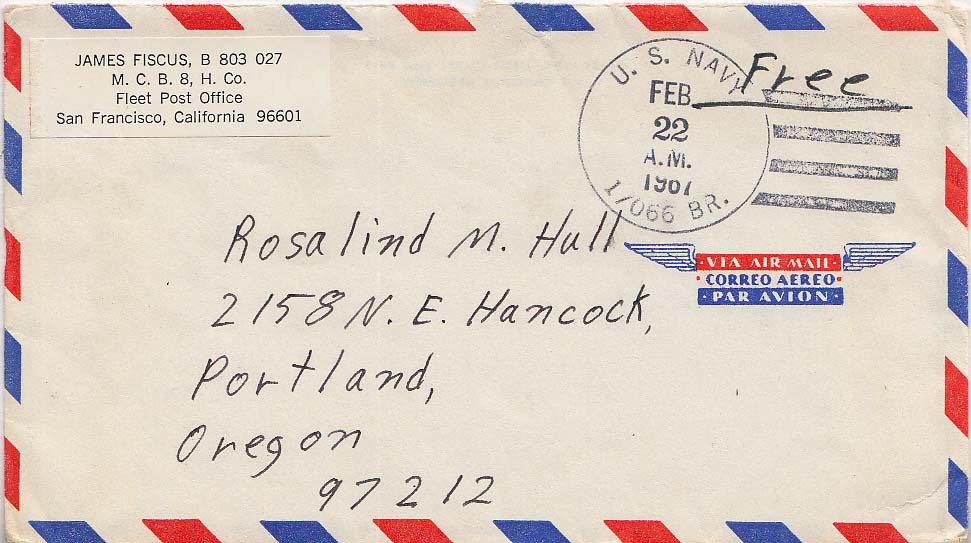 JAMES FISCUS, B 803 027
M. C. B. 8, H. Co.
Fleet Post Office
San Francisco, California 96601
U. S. NAVY
FEB
22
A.M.
1967
17066 BR.
Free
Rosalind M. Hull
2158 N. E. Hancock,
Portland,
Oregon
97212
·VIA AIR MAIL·
CORREO AEREO·
·PAR AVION·